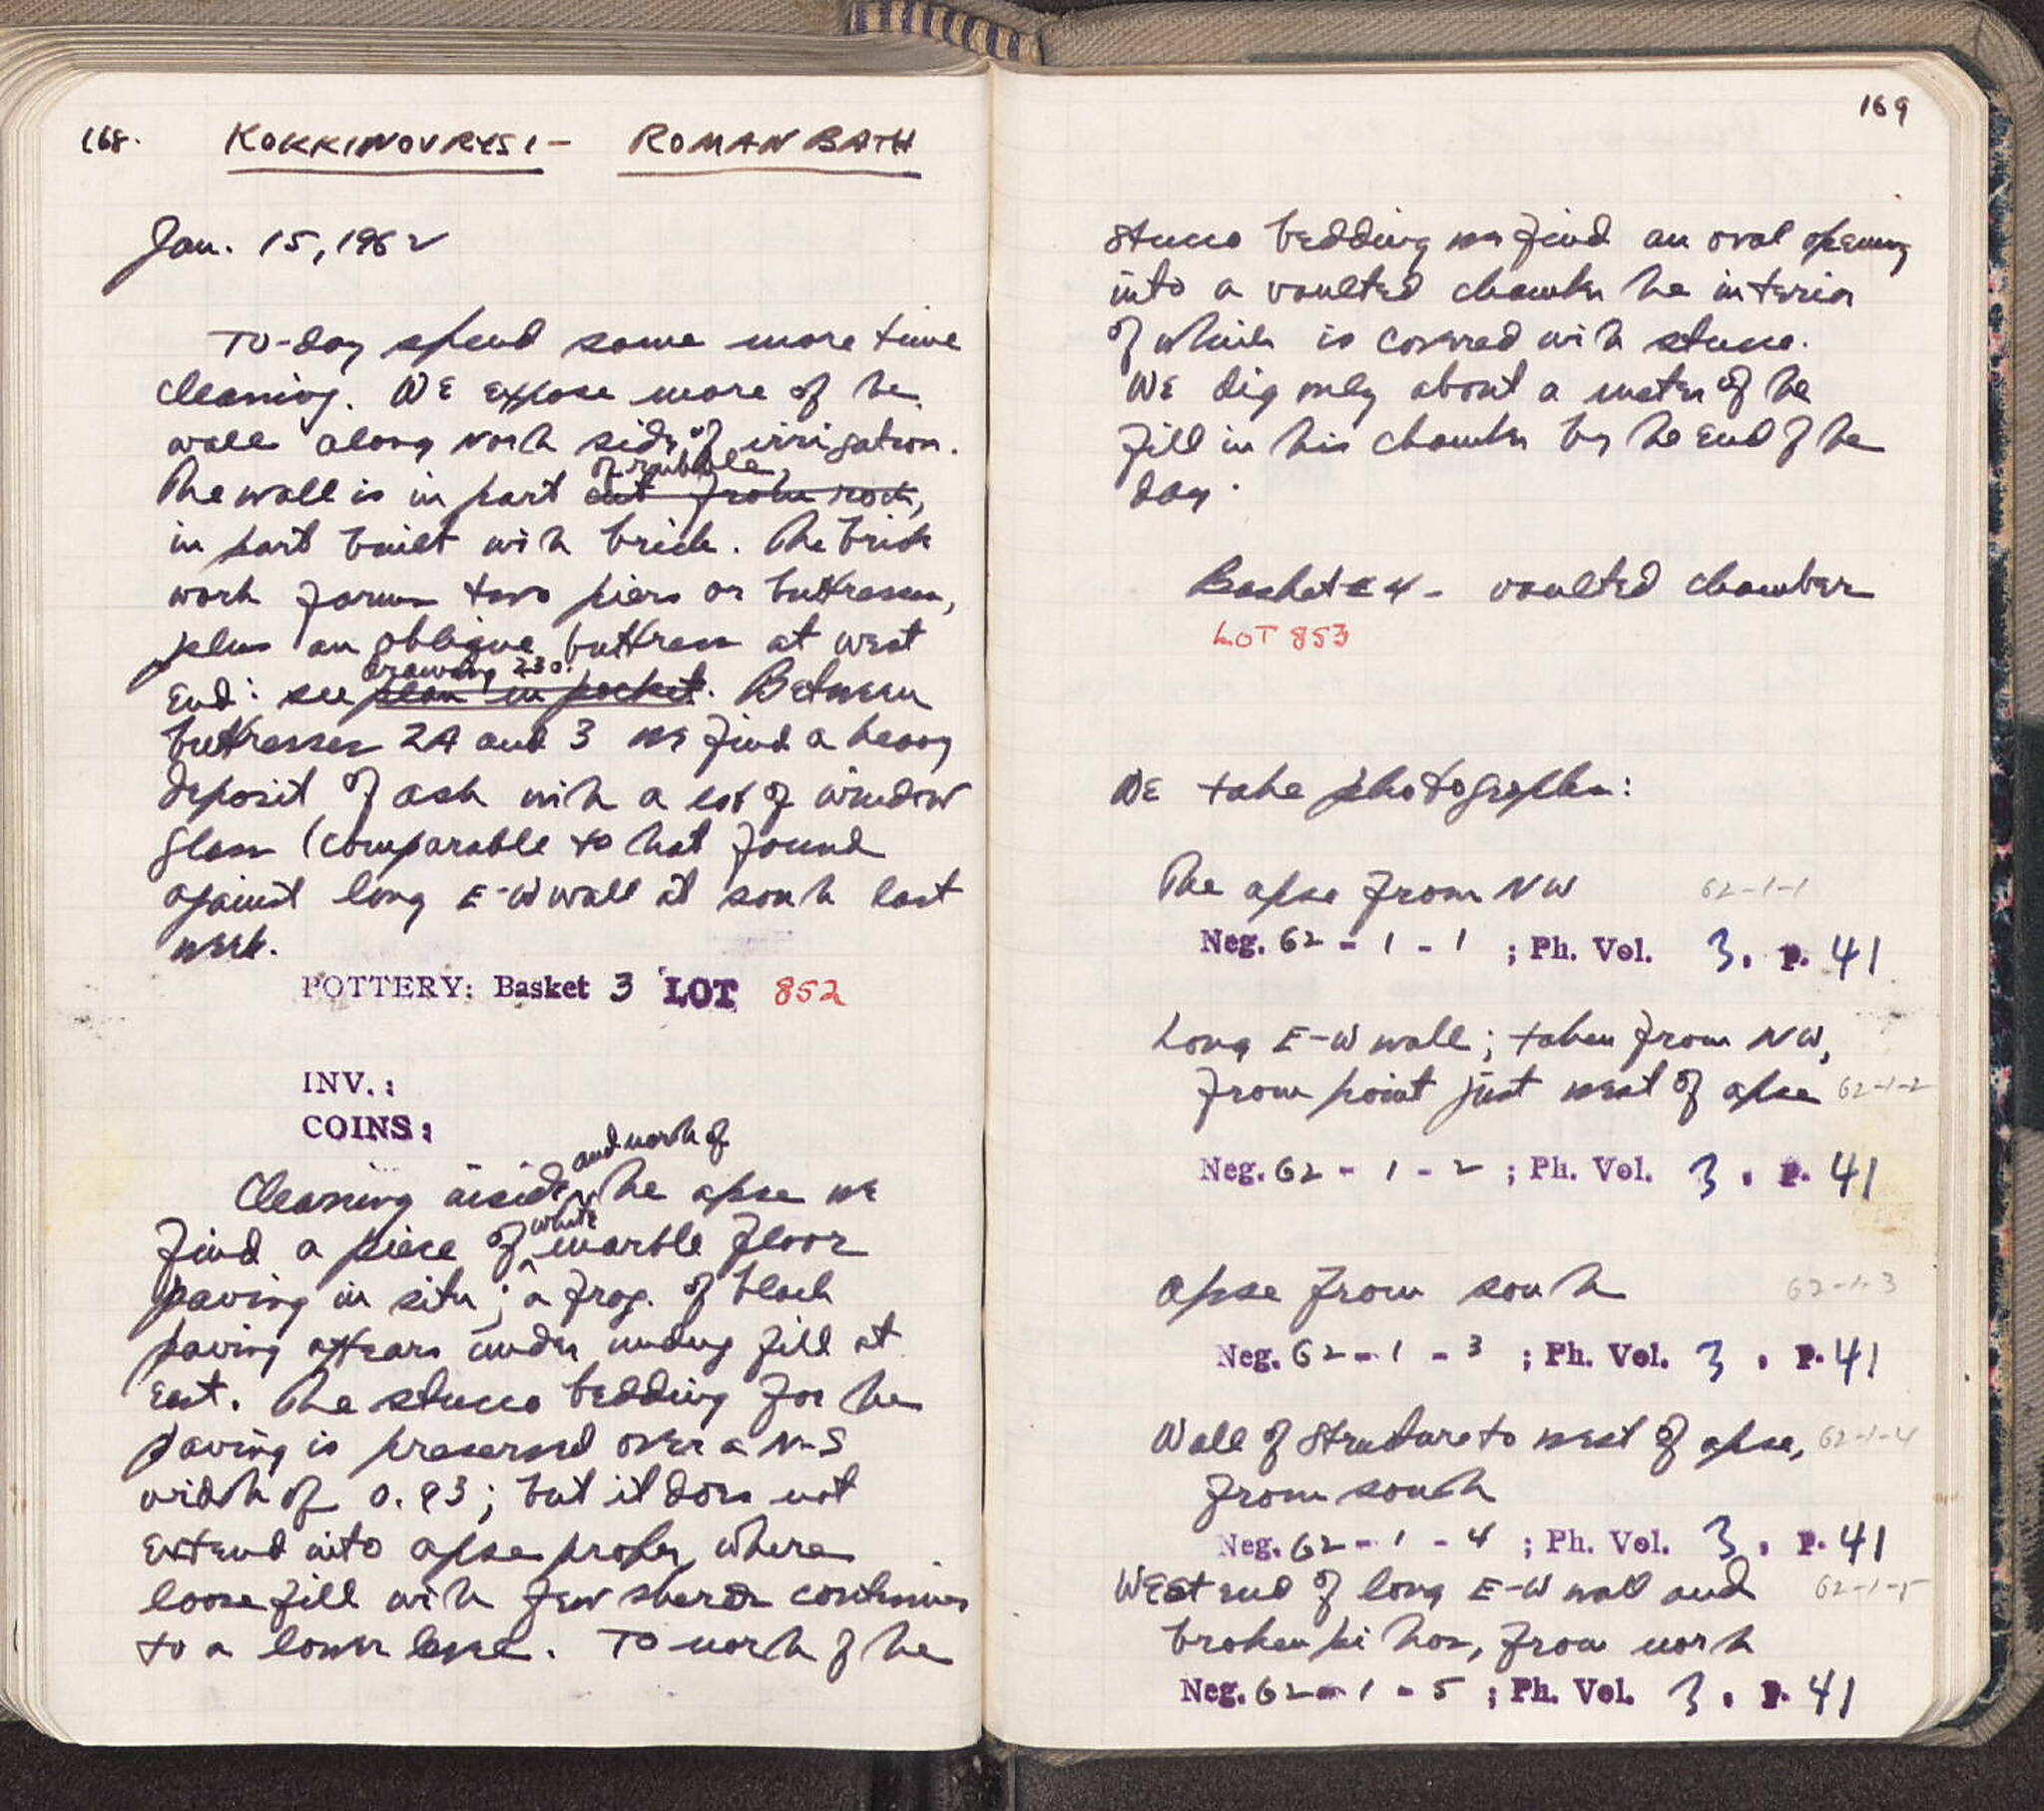 168.
KOKKINOVRYSI - ROMAN BATH
Jan. 15, 1962
To-day spend some more time
cleaning. We expose more of the
wall along north side of irrigation.
of rubble,
The wall is in part cut from rock,
in part built with brick. The brick
work forms two piers or buttresses,
plus an oblique buttress at west
drawing 230.
End: see plan in pocket. Between
buttresses 2A and 3 we find a heavy
deposit of ash with a lot of window
glass (comparable to that found
against long E-W wall at south last
week.
POTTERY: Basket 3 LOT 852
INV.:
COINS:
and north of
Cleaning inside the apse we
white
find a piece of marble floor
paving in situ; a frag. of black
paving appears under undug fill at
East. The stucco bedding for the
paving is preserved over a N-S
width of 0.93; but it does not
extend into apse proper, where
loose fill with few sherds continues
to a lower level. To north of the
169
stucco bedding we find an oval opening
into a vaulted chamber the interior
of which is covered with stucco.
We dig only about a meter of the
fill in this chamber by the end of the
day.
Basket # 4 - vaulted chamber
LOT 853
We take photographs:
The apse from NW 62-1-1
Neg. 62 - 1 - 1 ; Ph. Vol. 3, p. 41
Long E-W wall; taken from NW,
from point just west of apse 62-1-2
Neg. 62 - 1 - 2 ; Ph. Vol. 3, p. 41
Apse from south 62-1-3
Neg. 62 - 1 - 3 ; Ph. Vol. 3, p. 41
Wall of structure to west of apse, 62-1-4
from south
Neg. 62 - 1 - 4 ; Ph. Vol. 3, p. 41
West end of long E-W wall and 62-1-5
broken pithos, from north
Neg. 62 - 1 - 5 ; Ph. Vol. 3, p. 41